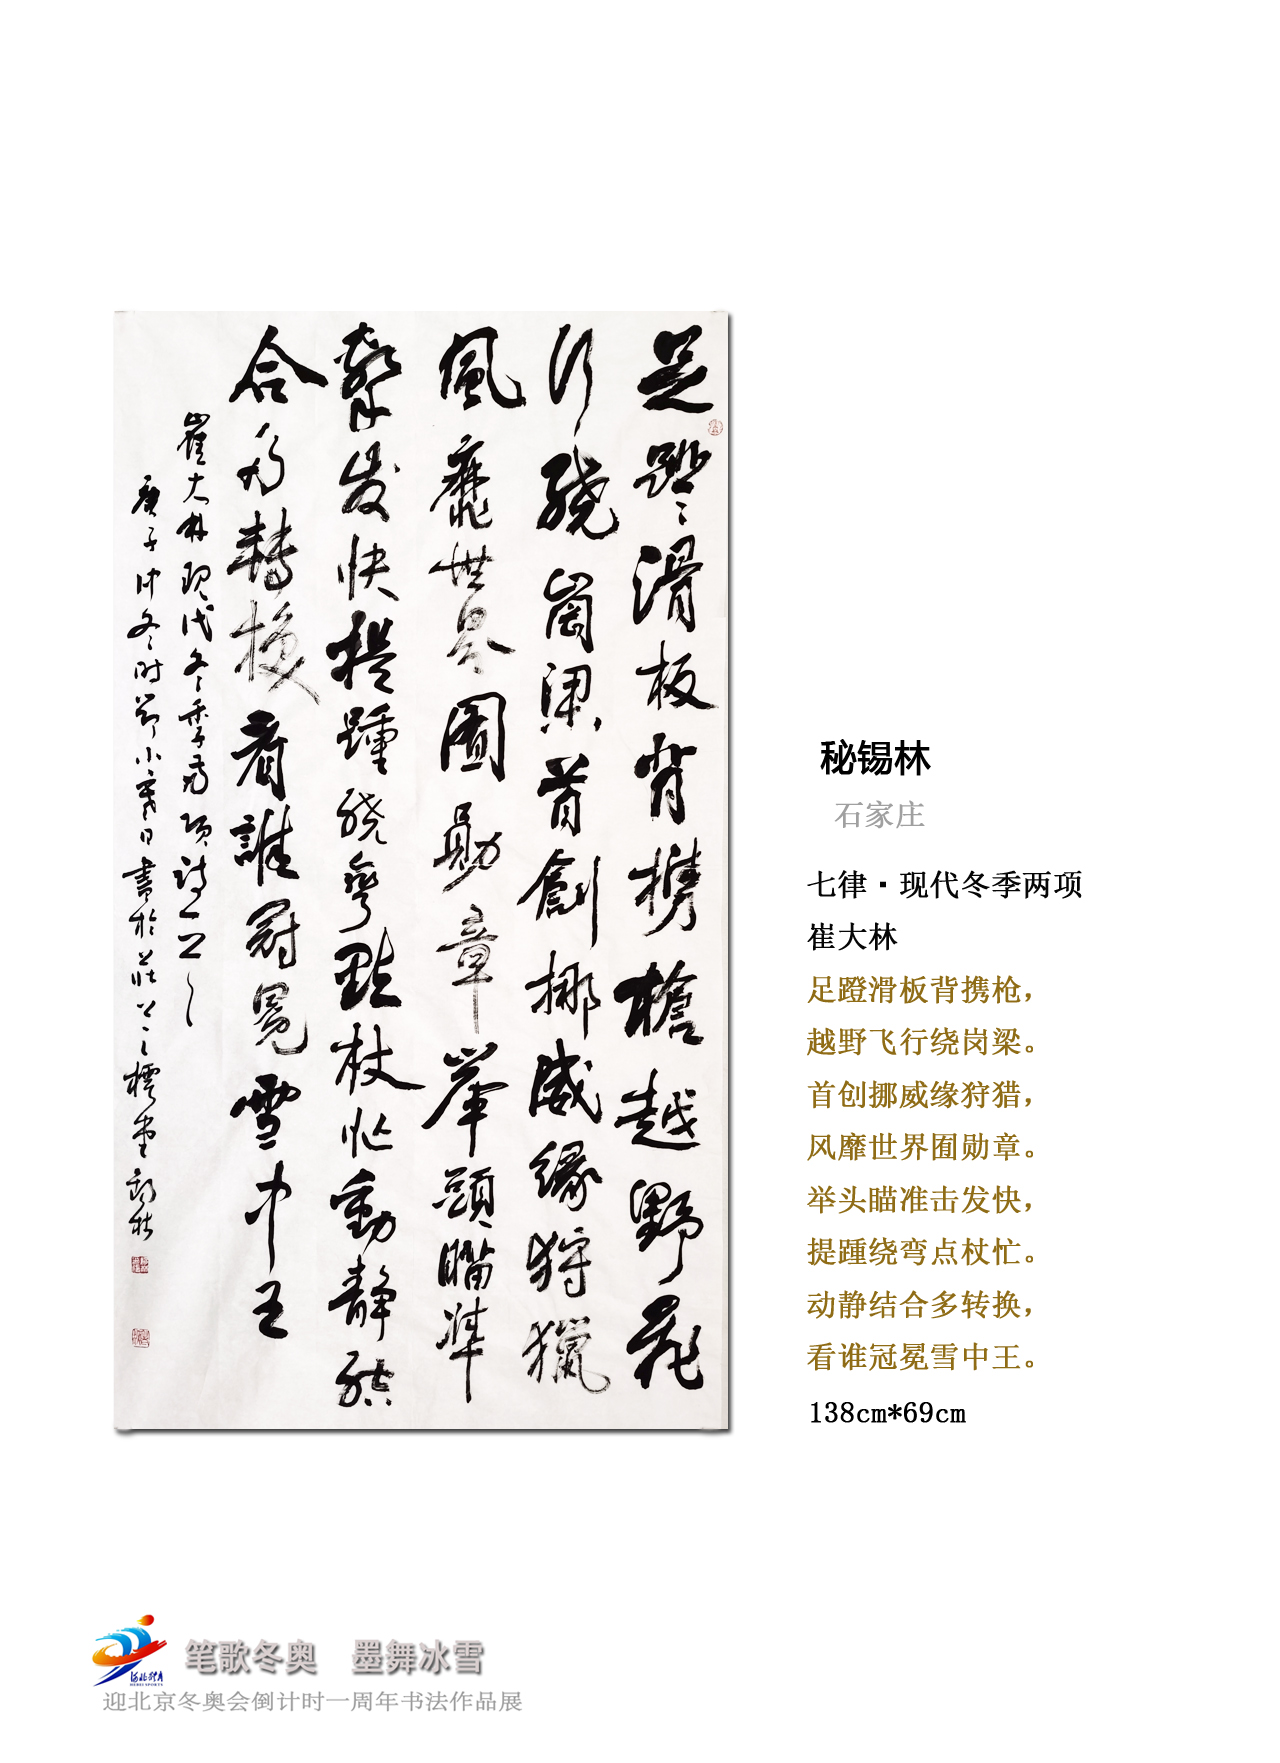 足蹬滑板背携槍越野飛
行绕崗梁首創挪威缘狩獵
風靡世界囿勛章舉頭瞄準
擊发快提踵绕彎點杖忙動静結
合多轉换看誰冠冕雪中王
崔大林现代冬季两项诗一首
庚子仲冬时节小寒日書於莊
秘锡林
石家庄
七律·现代冬季两项
崔大林
足蹬滑板背携枪，
越野飞行绕岗梁。
首创挪威缘狩猎，
风靡世界囿勋章。
举头瞄准击发快，
提踵绕弯点杖忙。
动静结合多转换，
看谁冠冕雪中王。
138cm*69cm
河北体育
HEBEI SPORTS
笔歌冬奥 墨舞冰雪
迎北京冬奥会倒计时一周年书法作品展